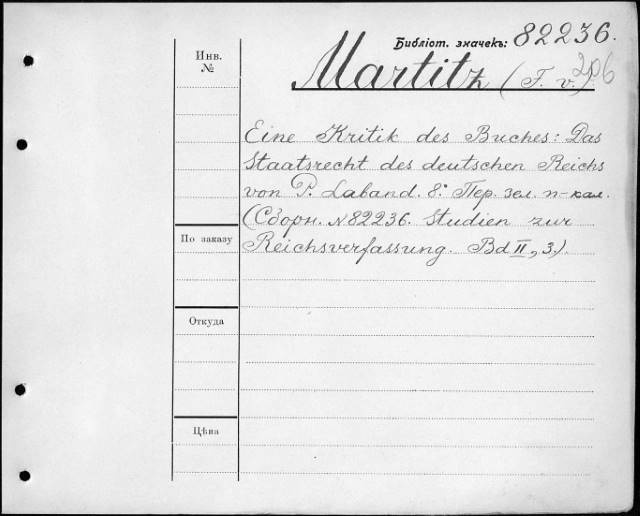 Библіот. значекъ: 82236.
206
Инв.
№
Martitz (F. v.).
Eine Kritik des Buches: Das
Staatsrecht des deutschen Reichs
von P. Laband. 8º Пер. зел. п-кал.
(Сборн. №82236. Studien zur
Reichsverfassung. Bd II, 3.).
По заказу
Откуда
Цѣна